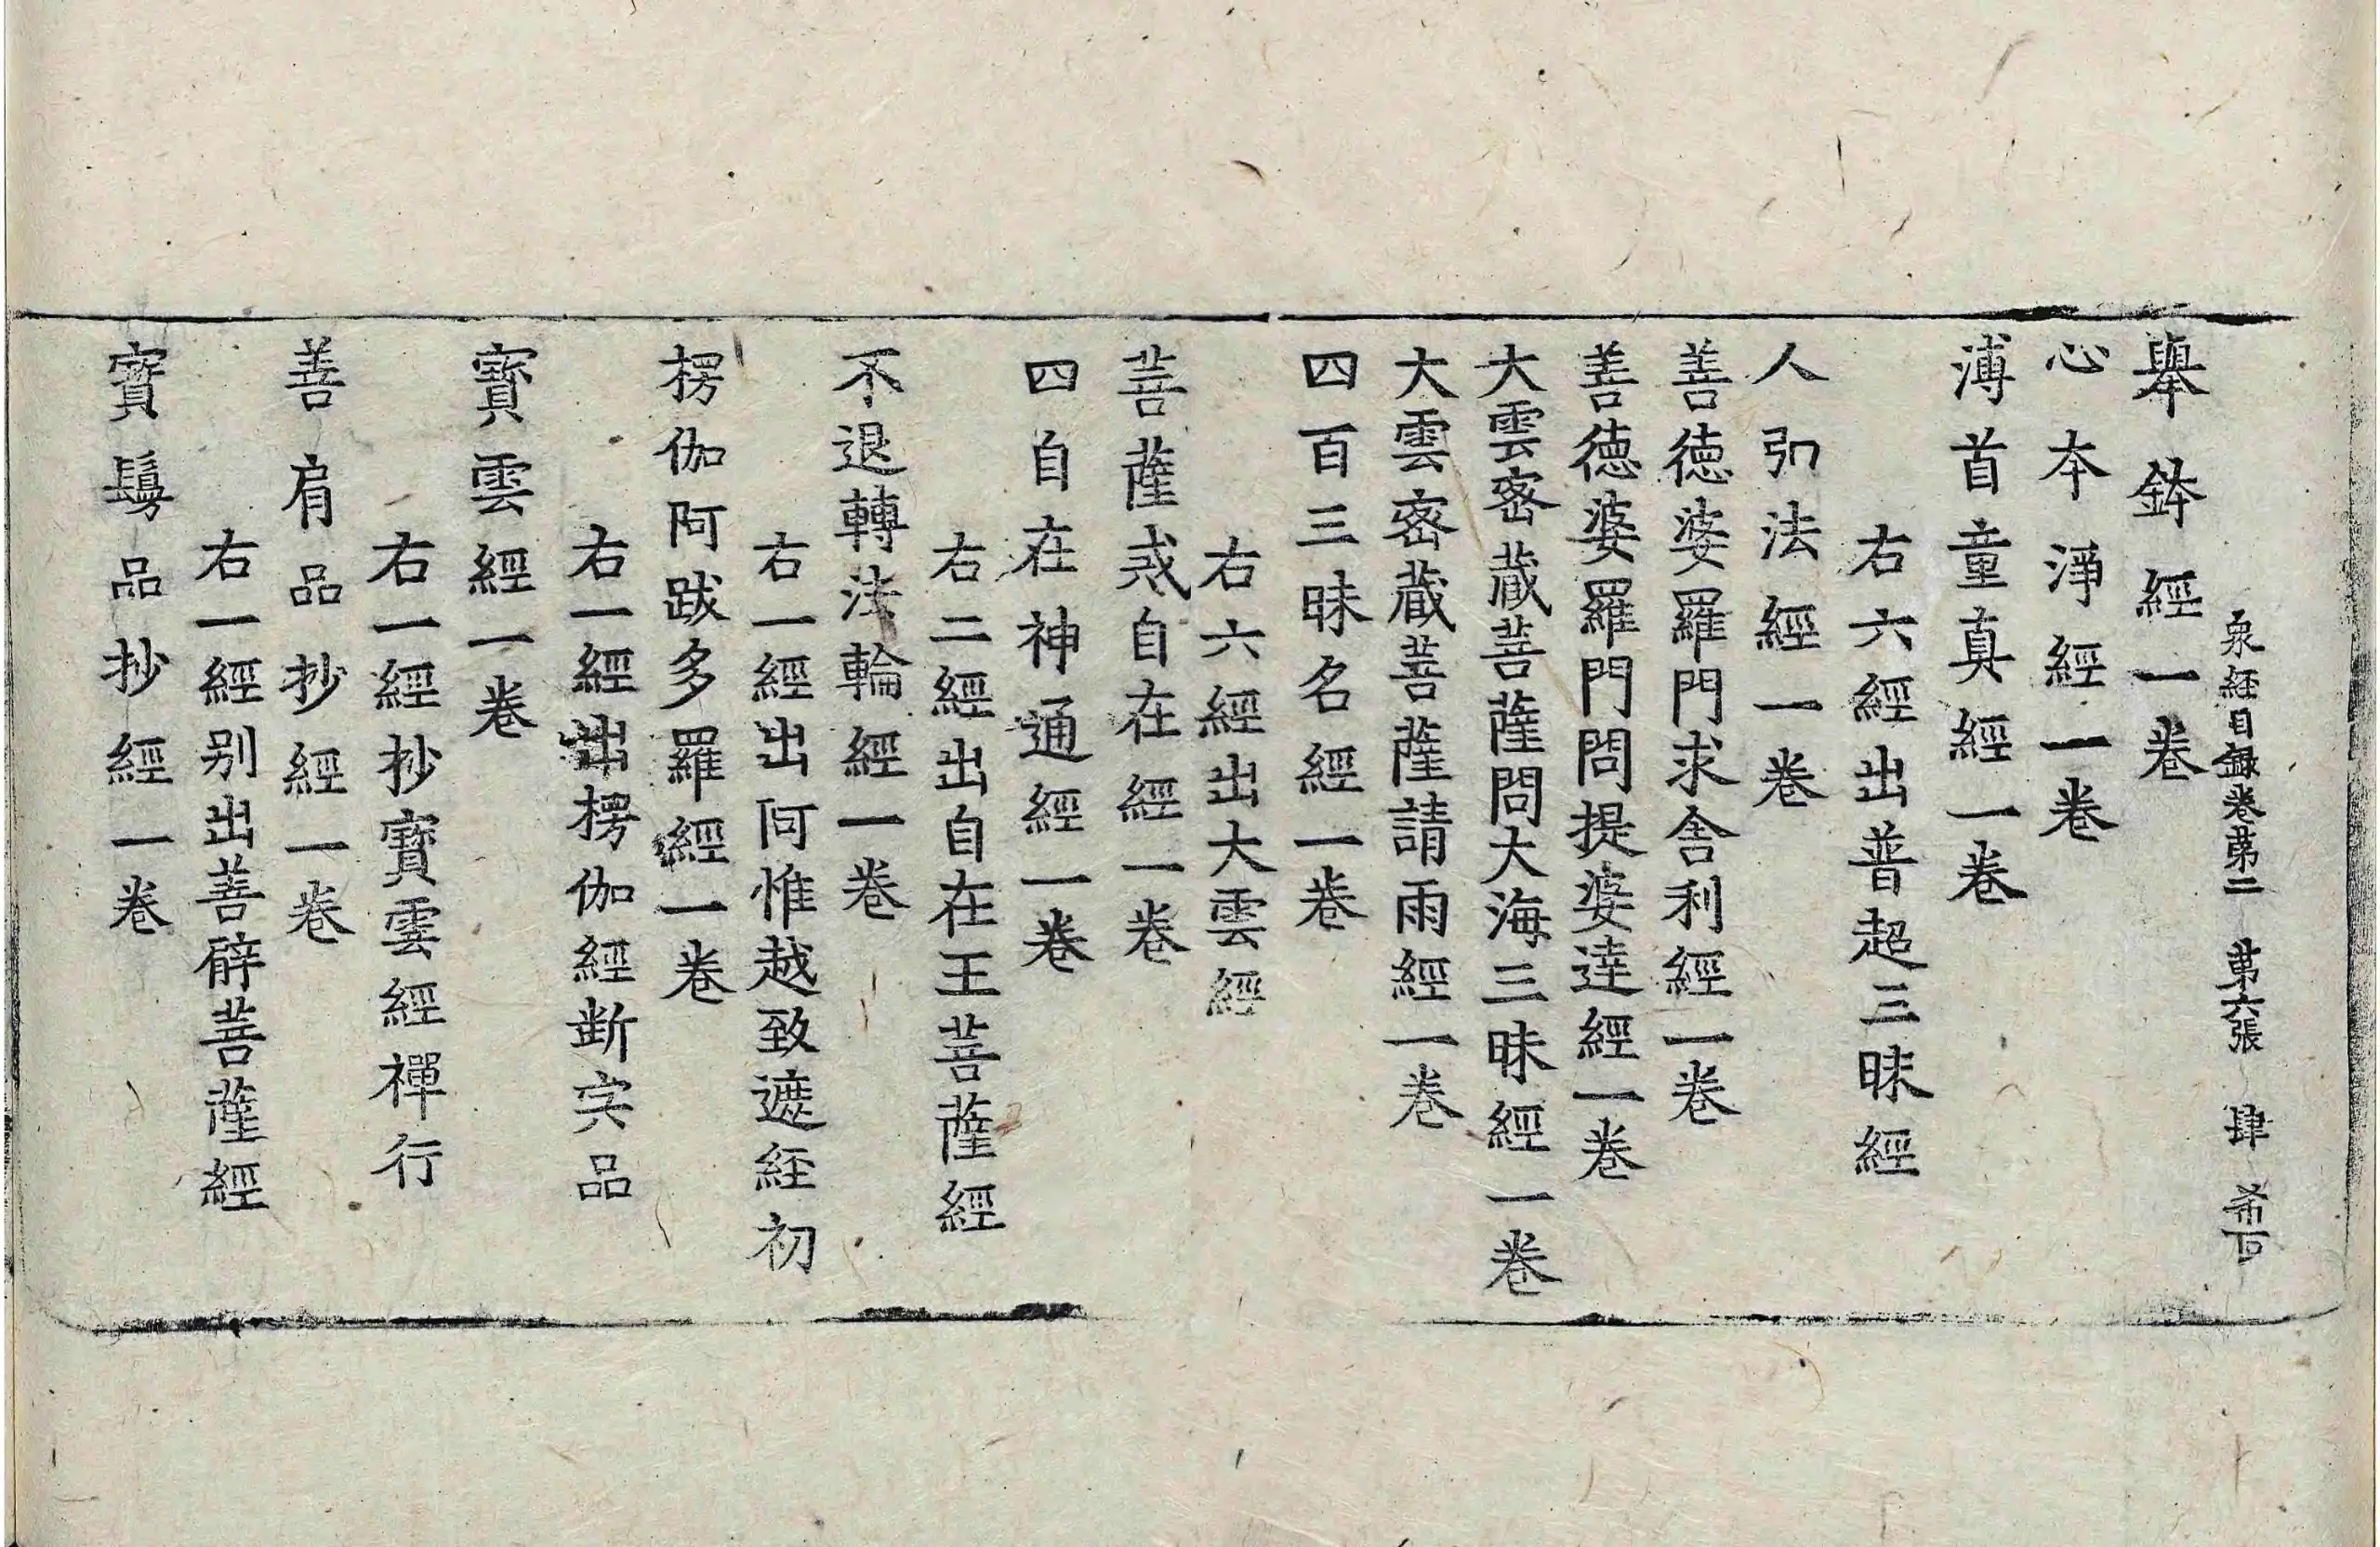 衆経目録卷第二　第六張　肆
舉鉢經一卷
心本淨經一卷
溥首童真經一卷
右六經出普超三昧經
人弘法經一卷
善德婆羅門求舍利經一卷
善德婆羅門問提婆達經一卷
大雲密蔵菩薩問大海三昧經一卷
大雲密蔵菩薩請雨經一卷
四百三昧名經一卷
右六經出大雲經
菩薩戒自在經一卷
四自在神通經一卷
右二經出自在王菩薩經
不退轉法輪經一卷
右一經出阿惟越致遮経初
楞伽阿跋多羅經一卷
右一經出楞伽經斷宍品
寳雲經一卷
右一經抄寳雲經禪行
善肩品抄經一卷
右一經別出善臂菩薩經
寳髣品抄經一卷